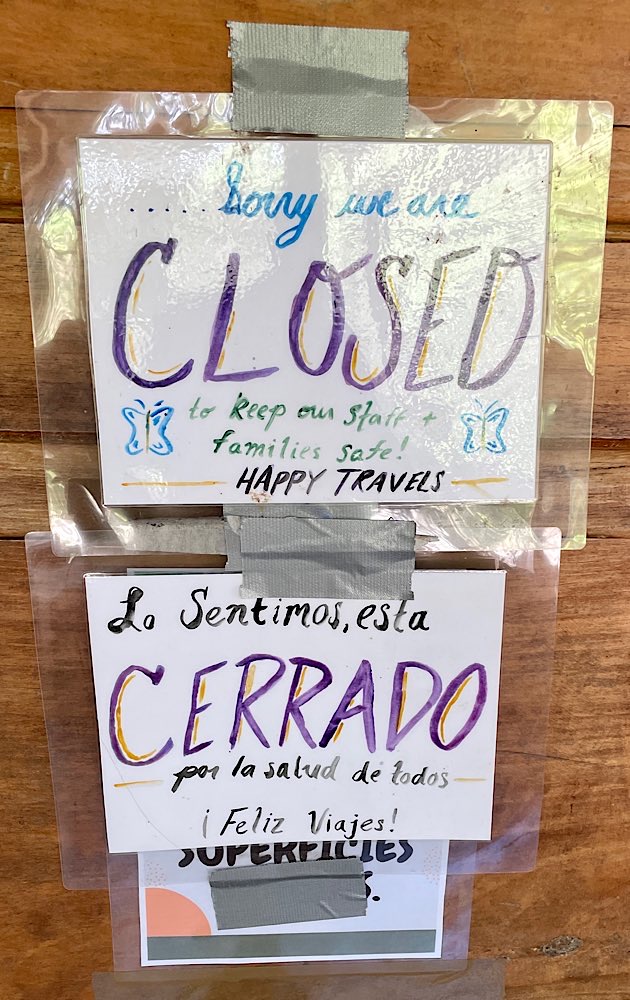 ..... Sorry we are
CLOSED
to keep our staff +
families safe!
HAPPY TRAVELS
Lo Sentimos, esta
CERRADO
por la salud de todos
¡Feliz Viajes!
SUPERFICIES
S.